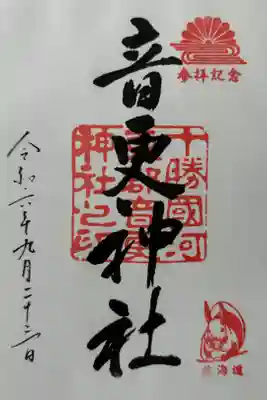 参拝記念
音更神社
十勝國河
東郡音更
神社之印
令和六年九月二十三日
北海道